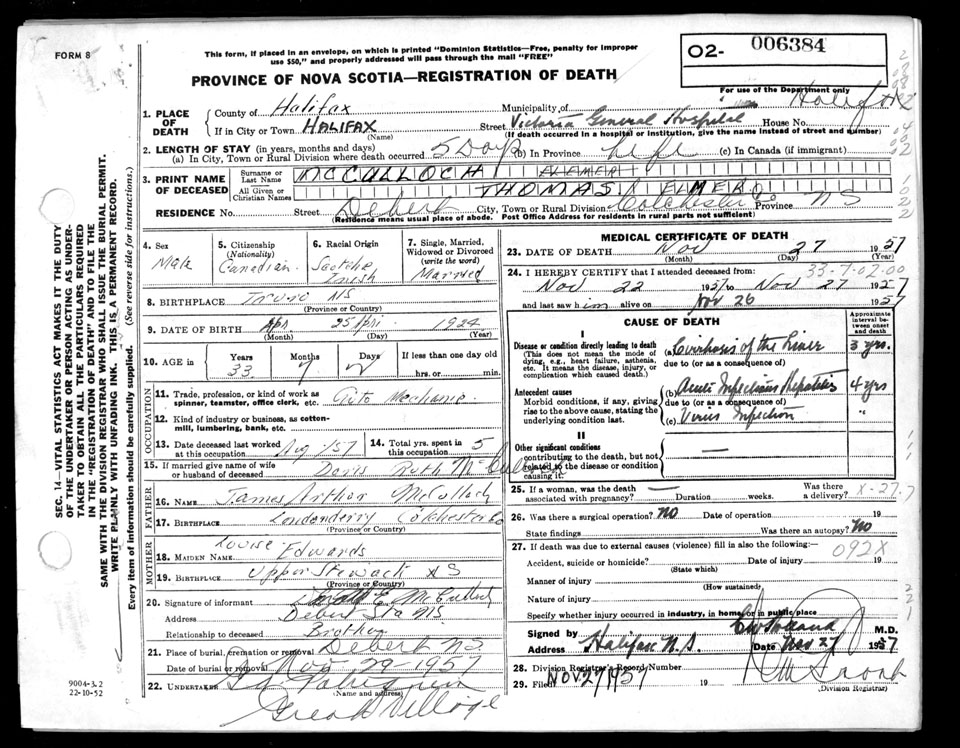 FORM 8
This form, if placed in an envelope, on which is printed "Dominion Statistics—Free, penalty for improper
use $50," and properly addressed will pass through the mail "FREE"
O2- 006384
PROVINCE OF NOVA SCOTIA—REGISTRATION OF DEATH
For use of the Department only
1. PLACE OF DEATH
County of Halifax Municipality of
If in City or Town HALIFAX Street Victoria General Hospital House No.
(Name) (If death occurred in a hospital or institution, give the name instead of street and number)
2. LENGTH OF STAY (in years, months and days)
(a) In City, Town or Rural Division where death occurred 5 Days (b) In Province Life (c) In Canada (if immigrant)
3. PRINT NAME OF DECEASED
Surname or Last Name MCCULLOCH ELEMER
All Given or Christian Names THOMAS ELMER
RESIDENCE No. Street Debert City, Town or Rural Division Colchester Co Province NS
(Residence means usual place of abode. Post Office Address for residents in rural parts not sufficient)
4. Sex Male
5. Citizenship (Nationality) Canadian
6. Racial Origin Scotch Irish
7. Single, Married, Widowed or Divorced (write the word) Married
8. BIRTHPLACE Truro NS
(Province or Country)
9. DATE OF BIRTH Apr. 25 Apr. 1924
(Month) (Day) (Year)
10. AGE in Years Months Days If less than one day
33 7 hrs. or min.
OCCUPATION
11. Trade, profession, or kind of work as spinner, teamster, office clerk, etc. Auto Mechanic
12. Kind of industry or business, as cotton-mill, lumbering, bank, etc.
13. Date deceased last worked at this occupation Aug 1/57
14. Total yrs. spent in this occupation 5
15. If married give name of wife or husband of deceased Doris Ruth McCulloch
FATHER
16. Name James Arthur McCulloch
17. Birthplace Londonderry Colchester Co
(Province or Country)
MOTHER
18. Maiden Name Louise Edwards
19. Birthplace Upper Stewiack NS
(Province or Country)
20. Signature of informant E. McCulloch
Address Debert Sta NS.
Relationship to deceased Brother
21. Place of burial, cremation or removal Debert NS
Date of burial or removal Nov 29-1957
22. UNDERTAKER
(Name and address)
Great Village
MEDICAL CERTIFICATE OF DEATH
23. DATE OF DEATH Nov 27 1957
(Month) (Day) (Year)
33-7-02-00
24. I HEREBY CERTIFY that I attended deceased from:
Nov 22 1957 to Nov 27 1957
and last saw him alive on Nov 26 1957
CAUSE OF DEATH
Approximate interval between onset and death
I
Disease or condition directly leading to death
(This does not mean the mode of dying, e.g., heart failure, asthenia, etc. It means the disease, injury, or complication which caused death.)
(a) Cirrhosis of the Liver 3 yrs.
due to (or as a consequence of)
Antecedent causes
Morbid conditions, if any, giving rise to the above cause, stating the underlying condition last.
(b) Acute Infectious Hepatitis 4 yrs
due to (or as a consequence of)
(c) Virus Infection "
II
Other significant conditions
contributing to the death, but not related to the disease or condition causing it.
—
25. If a woman, was the death associated with pregnancy? — Duration weeks. Was there a delivery?
X-27.7
26. Was there a surgical operation? No Date of operation 19
State findings Was there an autopsy? No
27. If death was due to external causes (violence) fill in also the following:—
092X
Accident, suicide or homicide? Date of injury 19
(State which)
Manner of injury
(How sustained)
Nature of injury
Specify whether injury occurred in industry, in home, or in public place
Signed by M.D.
Address Halifax N.S. Date Nov 27 1957
28. Division Registrar's Record Number
29. Filed NOV 27 1957 19
(Division Registrar)
SEC. 14—VITAL STATISTICS ACT MAKES IT THE DUTY
OF THE UNDERTAKER OR PERSON ACTING AS UNDER-
TAKER TO OBTAIN ALL THE PARTICULARS REQUIRED
IN THE "REGISTRATION OF DEATH" AND TO FILE THE
SAME WITH THE DIVISION REGISTRAR WHO SHALL ISSUE THE BURIAL PERMIT.
WRITE PLAINLY WITH UNFADING INK. THIS IS A PERMANENT RECORD.
Every item of information should be carefully supplied. (See reverse side for instructions.)
9004-3.2
22-10-52